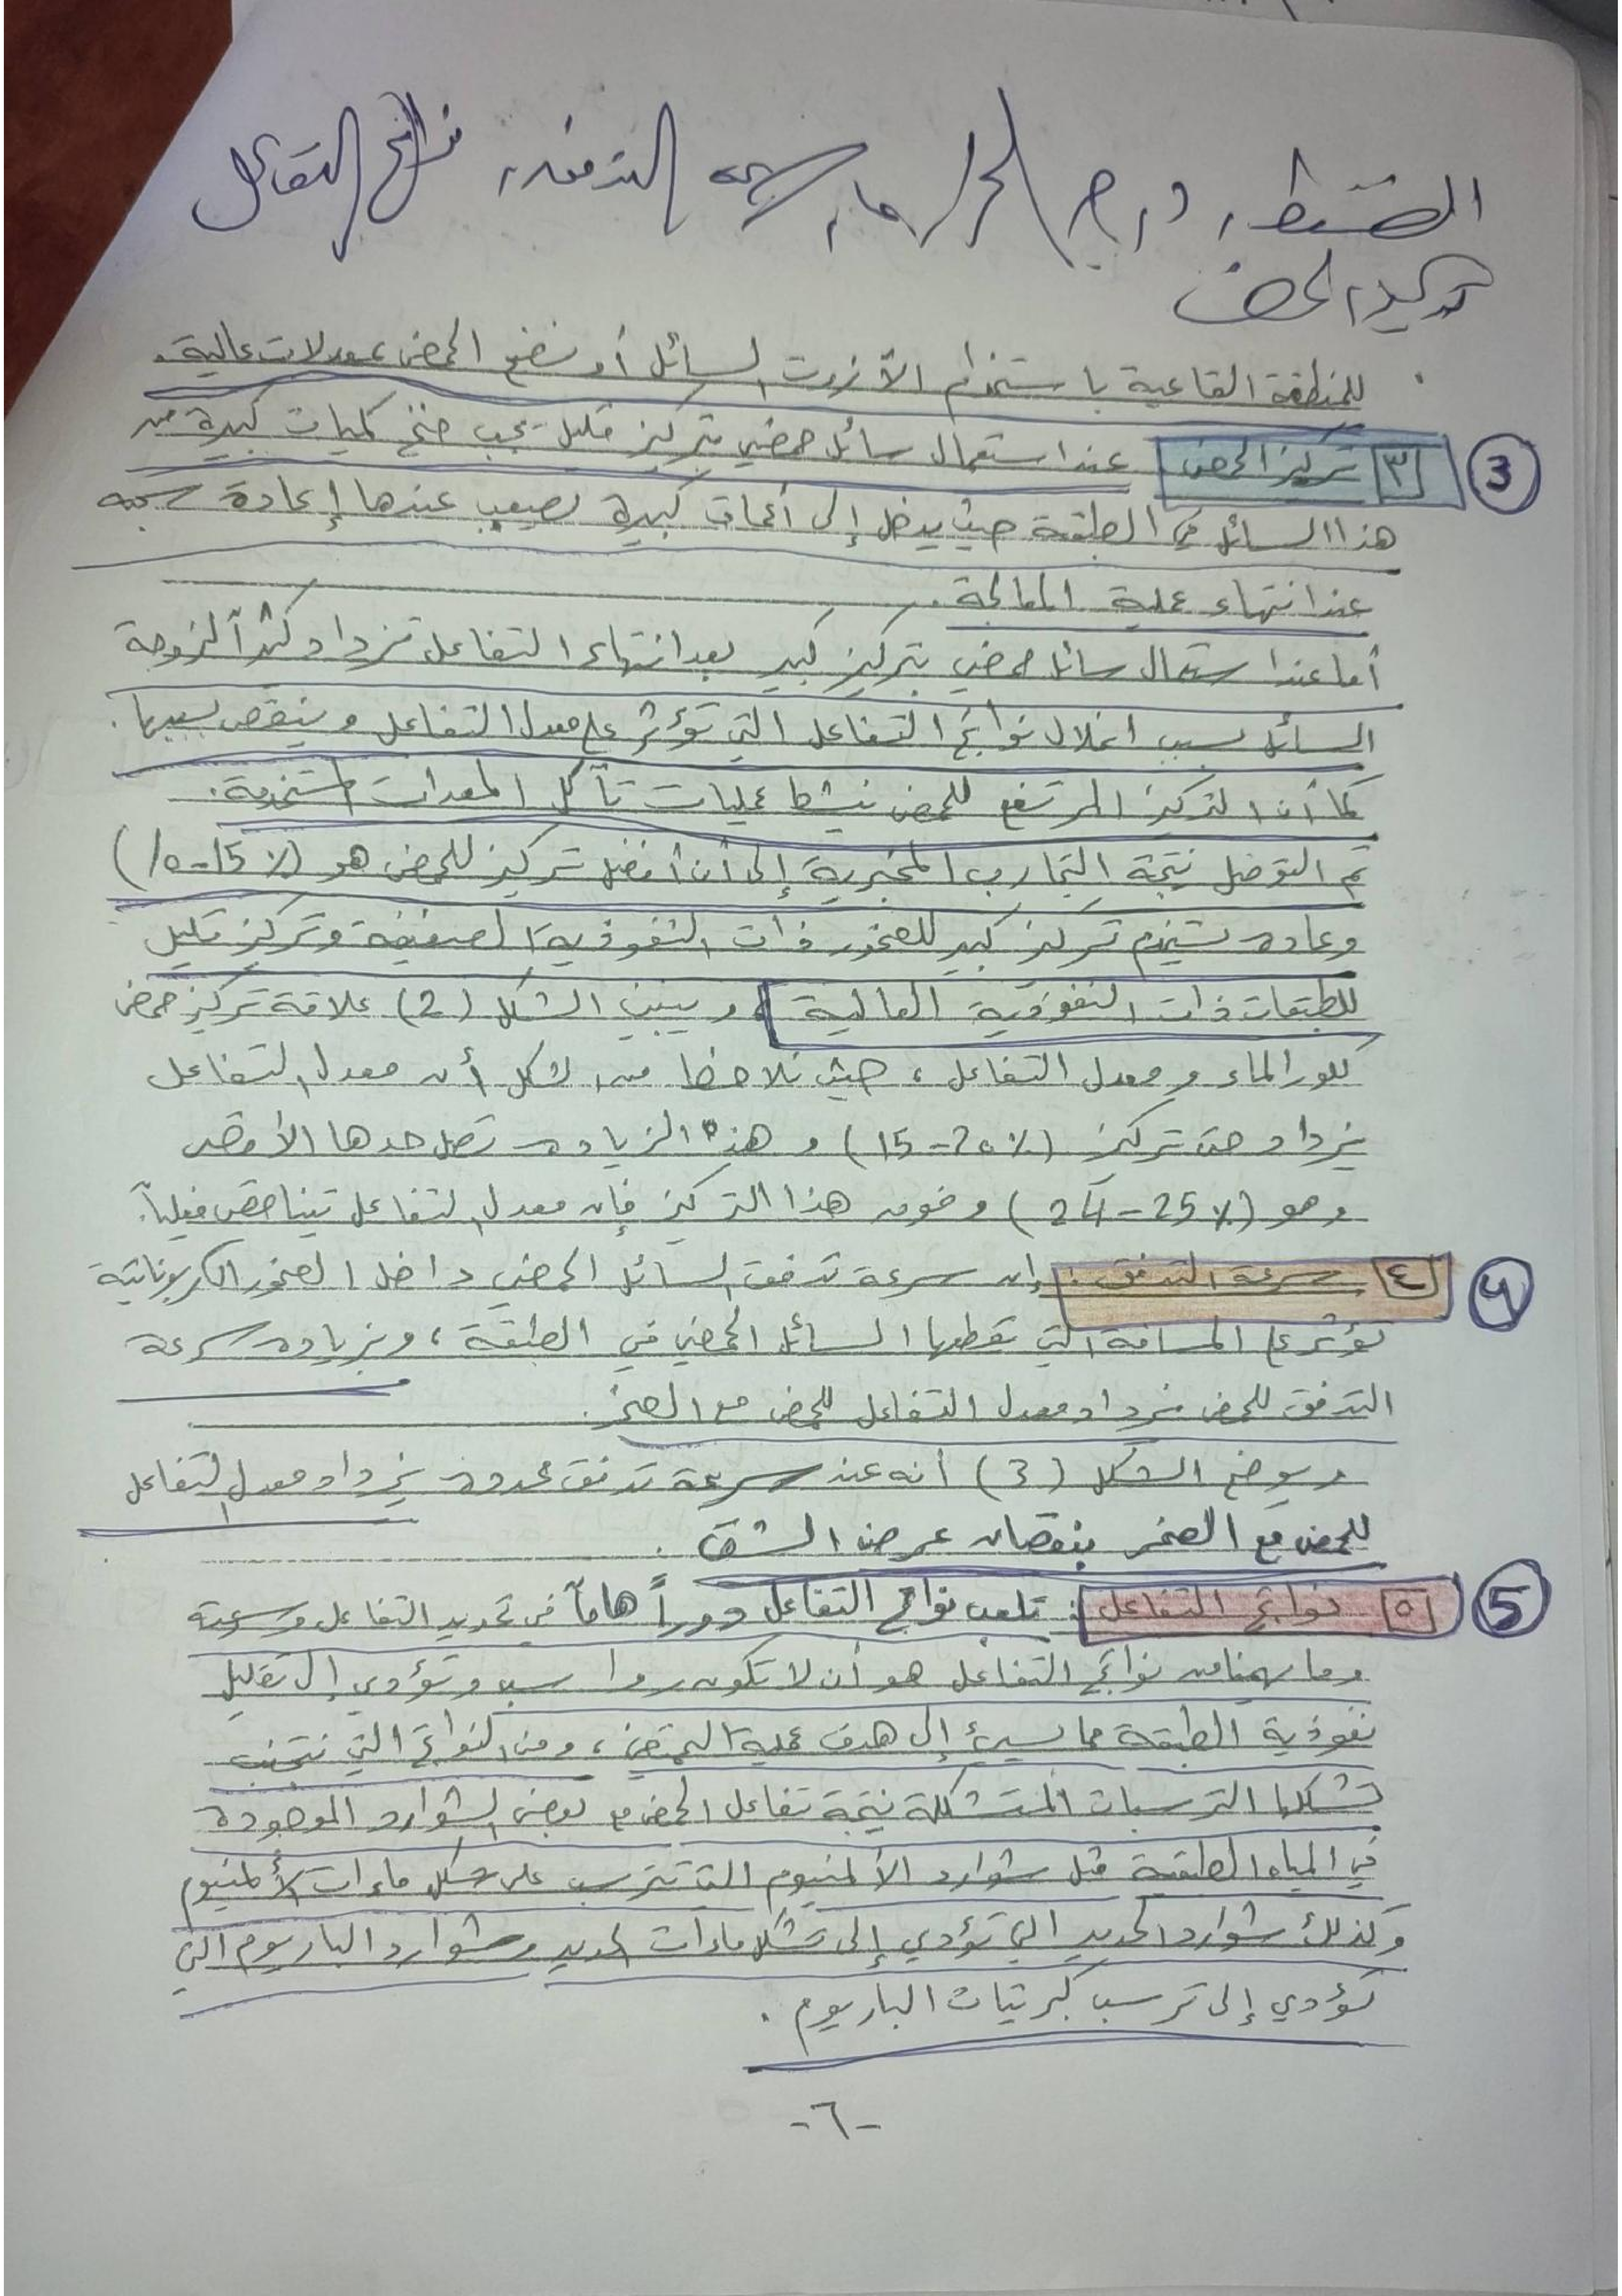 الضغط، درجة الحرارة، سرعة التدفق، نواتج التفاعل
تركيز الحمض
للمنطقة القاعية باستخدام الآزوت السائل أو نضخ الحمض بمعدلات عالية.
3
٣ تركيز الحمض عند استعمال سائل حمضي بتركيز قليل يجب ضخ كميات كبيرة من
هذا السائل في الطبقة حيث يدخل إلى أعماق كبيرة يصعب عندها إعادة سحبه
عند انتهاء عملية المعالجة.
أما عند استعمال سائل حمضي بتركيز كبير بعد انتهاء التفاعل تزداد كثيراً لزوجة
السائل بسبب انحلال نواتج التفاعل التي تؤثر على معدل التفاعل وينقص بسببها.
كما أن التركيز المرتفع للحمض ينشط عمليات تآكل المعدات المستخدمة.
تم التوصل نتيجة التجارب المخبرية إلى أن أفضل تركيز للحمض هو (10-15%)
وعادة يستخدم تركيز كبير للصخور ذات النفوذية الضعيفة وتركيز قليل
للطبقات ذات النفوذية العالية، ويبين الشكل (2) علاقة تركيز حمض
كلور الماء ومعدل التفاعل، حيث نلاحظ من الشكل أن معدل التفاعل
يزداد حتى تركيز (15-20%) وهذه الزيادة تصل حدها الأقصى
وهو (24-25%) وفوق هذا التركيز فإن معدل التفاعل يتناقص فعلياً.
4
٤ سرعة التدفق: إن سرعة تدفق السائل الحمضي داخل الصخور الكربوناتية
تؤثر على المسافة التي يقطعها السائل الحمضي في الطبقة، وبزيادة سرعة
التدفق للحمض يزداد معدل التفاعل للحمض مع الصخر.
ويوضح الشكل (3) أنه عند سرعة تدفق محددة يزداد معدل التفاعل
للحمض مع الصخر بنقصان عرض الشق.
5
٥ نواتج التفاعل: تلعب نواتج التفاعل دوراً هاماً في تحديد التفاعل وسرعته
وما يهمنا من نواتج التفاعل هو أن لا تكون رواسب وتؤدي إلى تقليل
نفوذية الطبقة مما يسيء إلى هدف عملية التحميض، ومن النواتج التي نتجنب
تشكلها الترسبات المتشكلة نتيجة تفاعل الحمض مع بعض الشوارد الموجودة
في المياه الطبقية مثل شوارد الألمنيوم التي تترسب على شكل ماءات الألمنيوم
وكذلك شوارد الحديد التي تؤدي إلى تشكل ماءات الحديد وشوارد الباريوم التي
تؤدي إلى ترسب كبريتات الباريوم.
-٦-